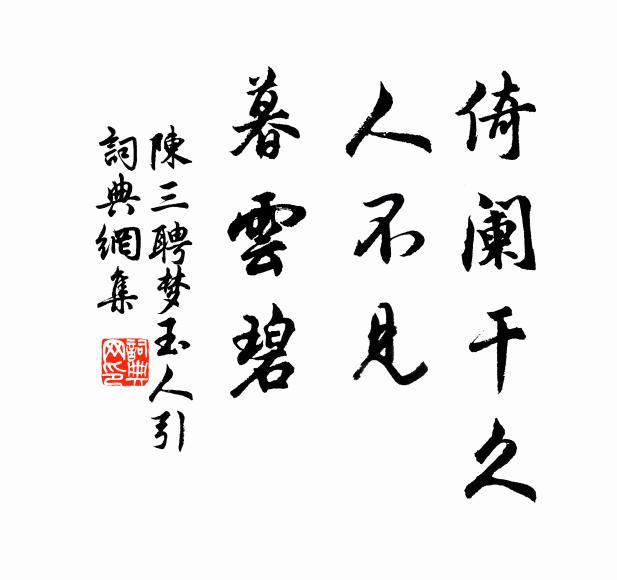 倚阑干久
人不见
暮雲碧
陳三聘梦玉人引
詞典網集
詞典
网印